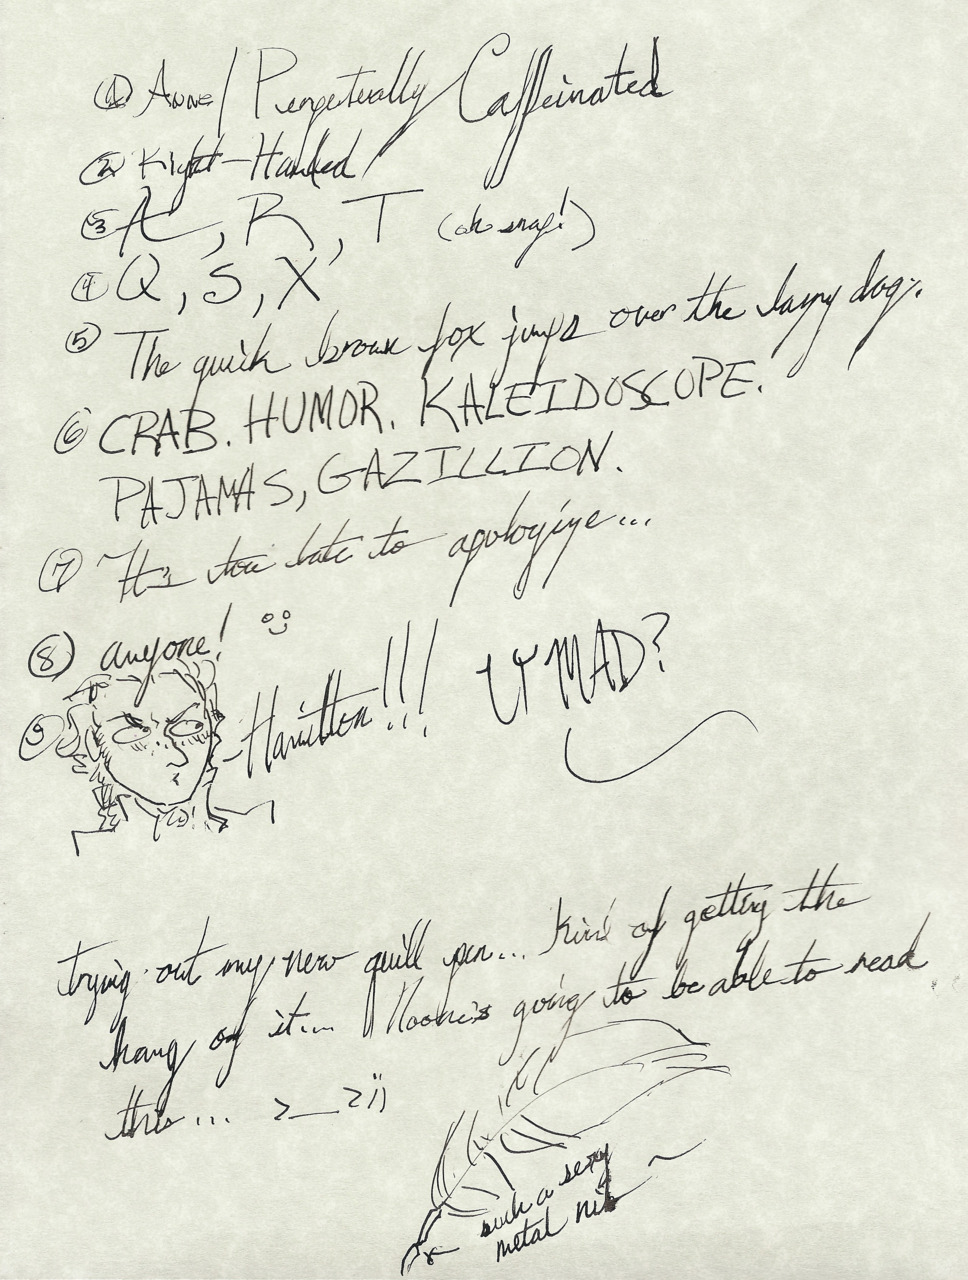 ① Anne/Perpetually Caffeinated
② Right-Handed
③ A, R, T (oh snap!)
④ Q, S, X
⑤ The quick brown fox jumps over the lazy dog.
⑥ CRAB. HUMOR. KALEIDOSCOPE.
PAJAMAS, GAZILLION.
⑦ It's too late to apologize...
⑧ anyone! :)
⑨ Hamilton!!! U MAD?
trying out my new quill pen... kind of getting the
hang of it... No one's going to be able to read
this... >__>;;
such a sexy
metal nib ~